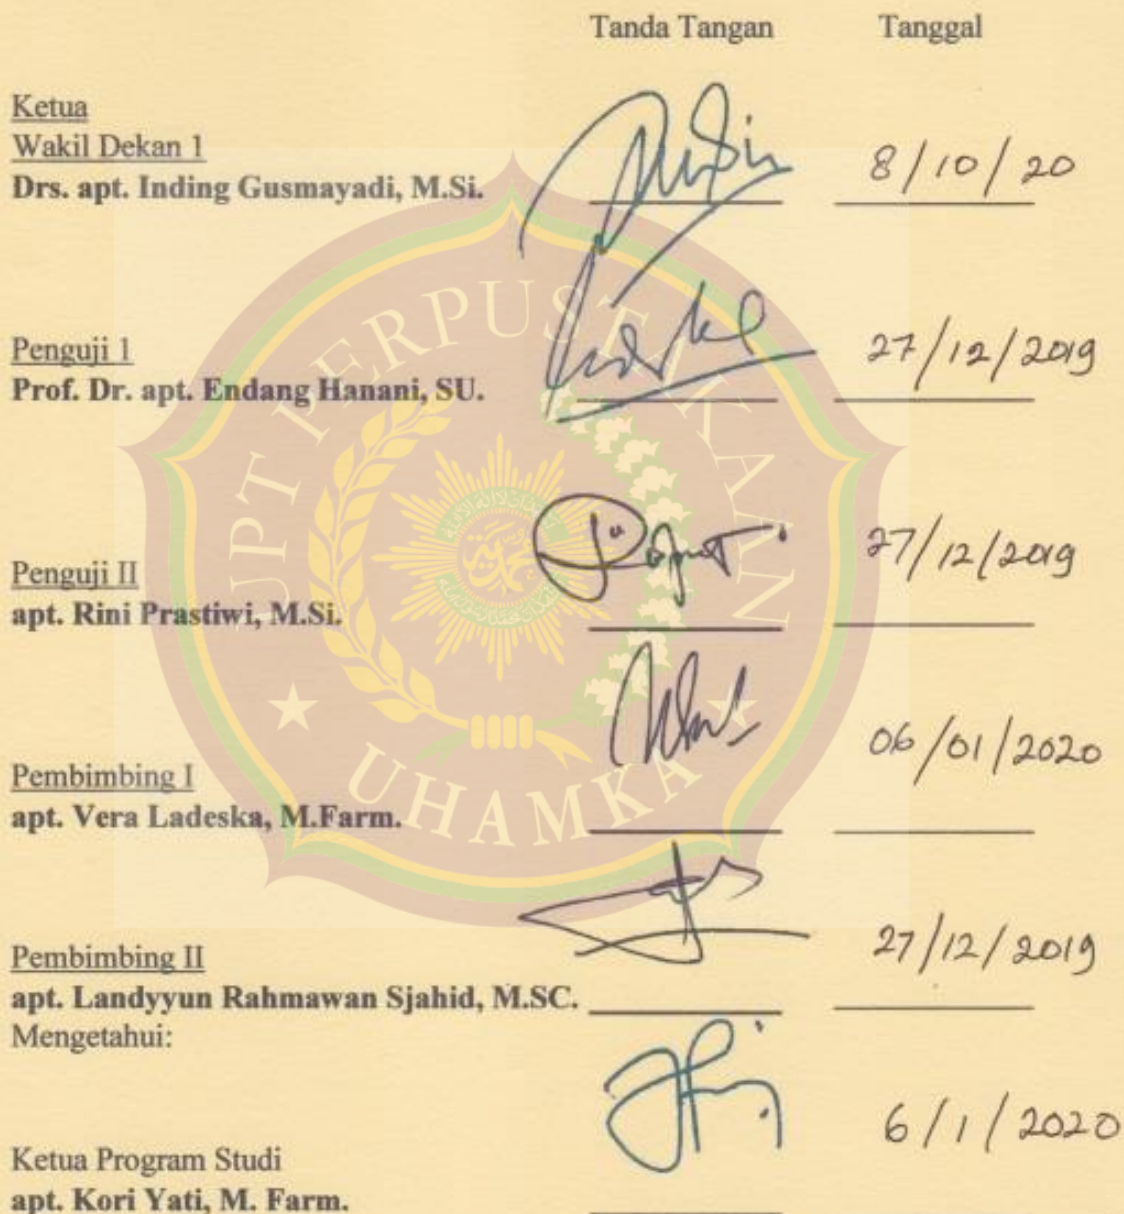 Tanda Tangan Tanggal
Ketua
Wakil Dekan 1
Drs. apt. Inding Gusmayadi, M.Si. 8/10/20
Penguji 1
Prof. Dr. apt. Endang Hanani, SU. 27/12/2019
Penguji II
apt. Rini Prastiwi, M.Si. 27/12/2019
Pembimbing I
apt. Vera Ladeska, M.Farm. 06/01/2020
Pembimbing II
apt. Landyyun Rahmawan Sjahid, M.SC. 27/12/2019
Mengetahui:
Ketua Program Studi
apt. Kori Yati, M. Farm. 6/1/2020
UPT PERPUSTAKAAN
UHAMKA